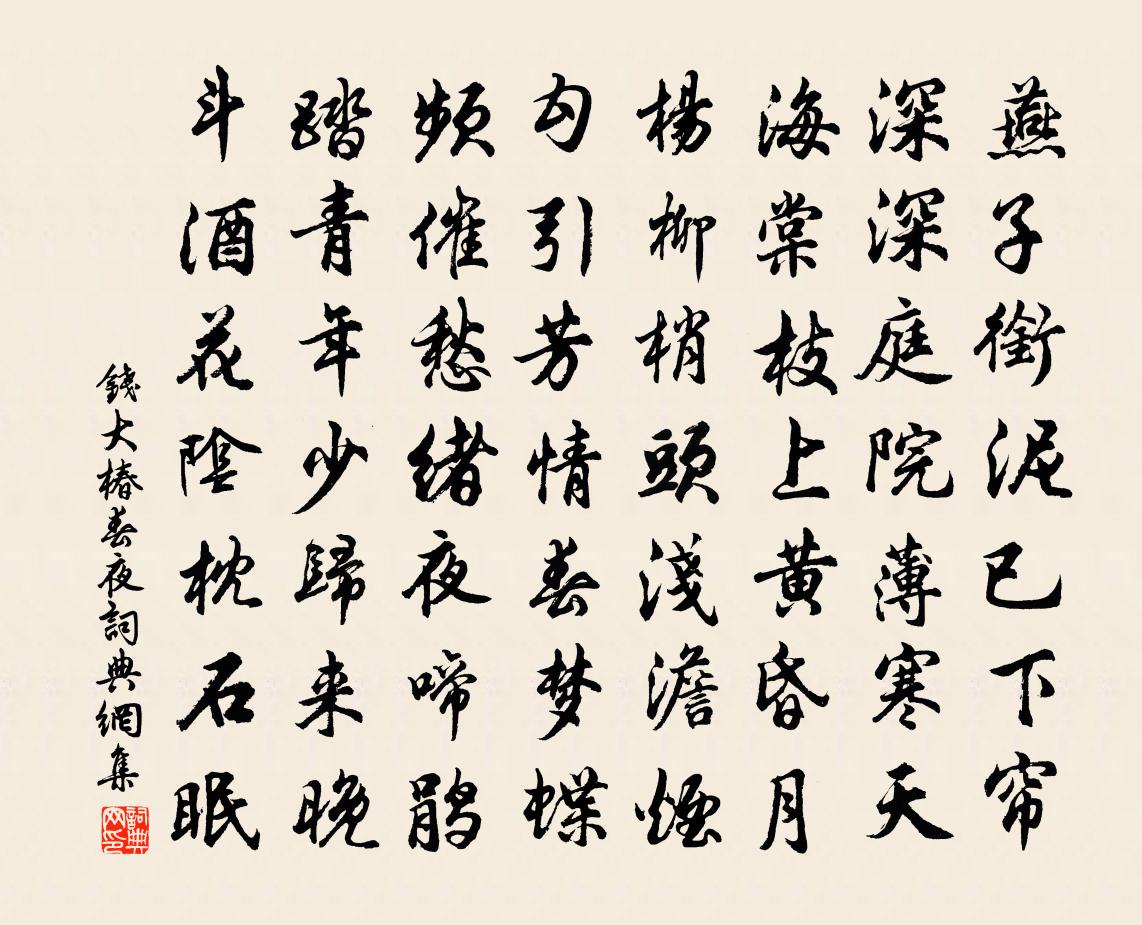 燕子銜泥已下帘
深深庭院薄寒天
海棠枝上黄昏月
楊柳梢頭淺澹煙
勾引芳情春梦蝶
頻催愁緒夜啼鹃
踏青年少歸来晚
斗酒花陰枕石眠
錢大椿春夜詞典網集
詞典网印